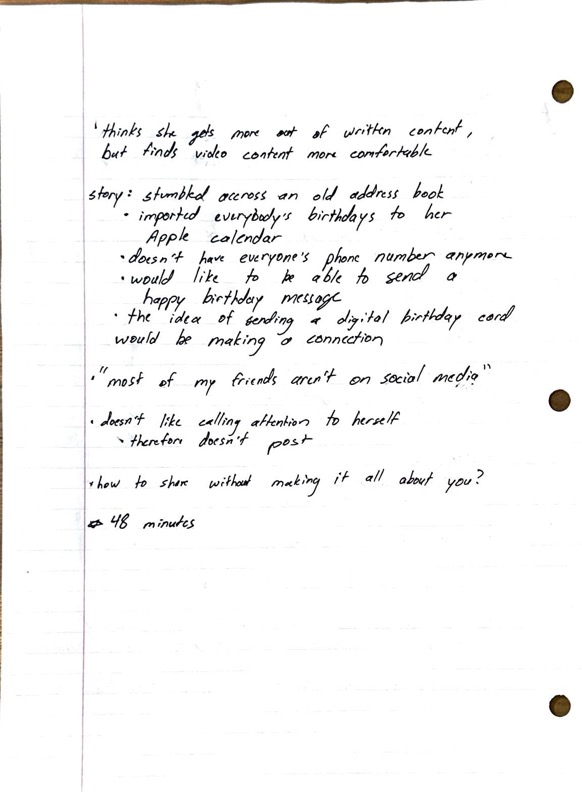 ' thinks she gets more out of written content,
but finds video content more comfortable
story: stumbled accross an old address book
• imported everybody's birthdays to her
Apple calendar
• doesn't have everyone's phone number anymore
• would like to be able to send a
happy birthday message
• the idea of sending a digital birthday card
would be making a connection
• "most of my friends aren't on social media"
• doesn't like calling attention to herself
↘ therefore doesn't post
• how to share without making it all about you?
⇒ 48 minutes